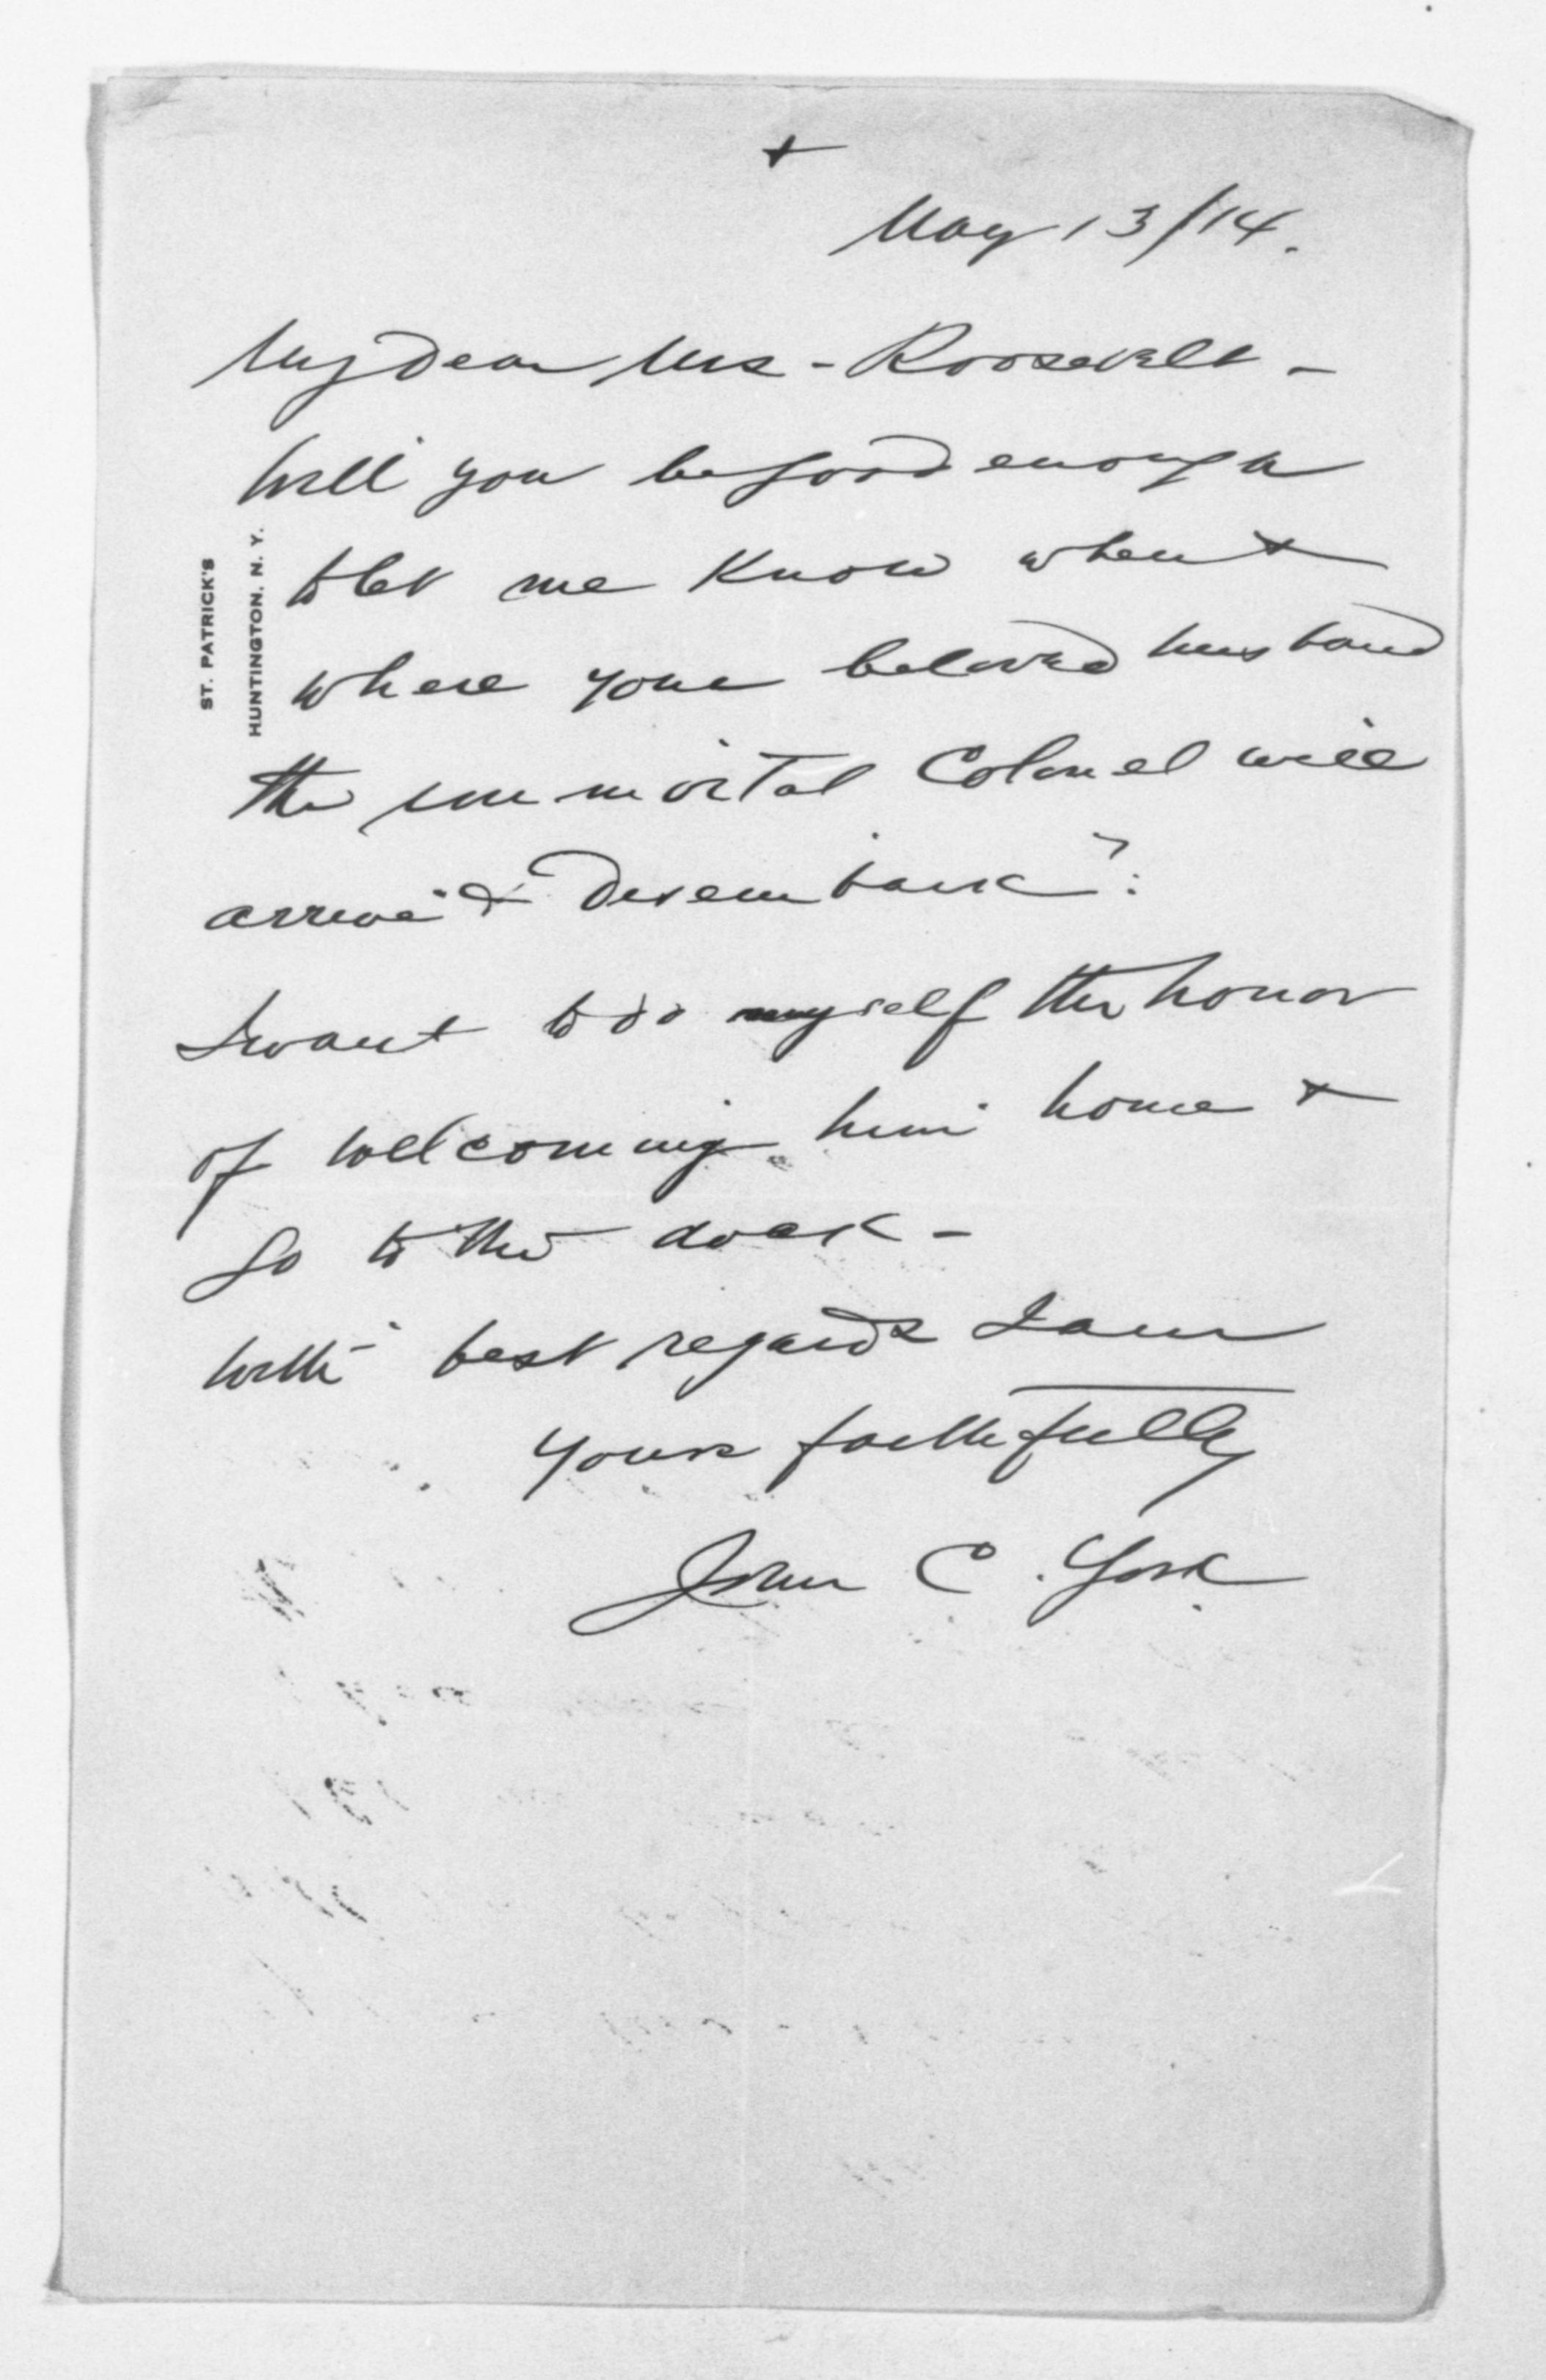 +
May 13/14.
My Dear Mrs - Roosevelt -
Will you be good enough
to let me know when +
where your beloved husband
the immortal Colonel will
arrive & Disembark?
I want to do myself the honor
of welcoming him home +
go to the dock -
With best regards I am
Yours faithfully
John C. York
ST. PATRICK'S
HUNTINGTON. N. Y.